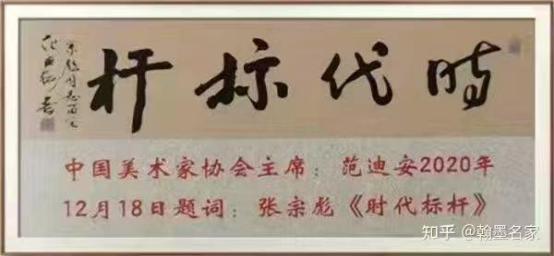 時代标杆
范迪安书
中国美术家协会主席：范迪安2020年
12月18日题词：张宗彪《时代标杆》
知乎 @翰墨名家